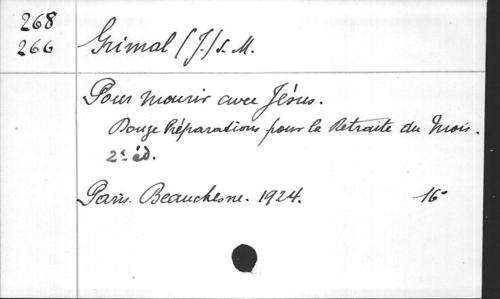 268
266
Grimal (J.) s. M.
Pour mourir avec Jésus.
Douze Préparations pour la Retraite du Mois.
2e éd.
Paris. Beauchesne. 1924. 16°